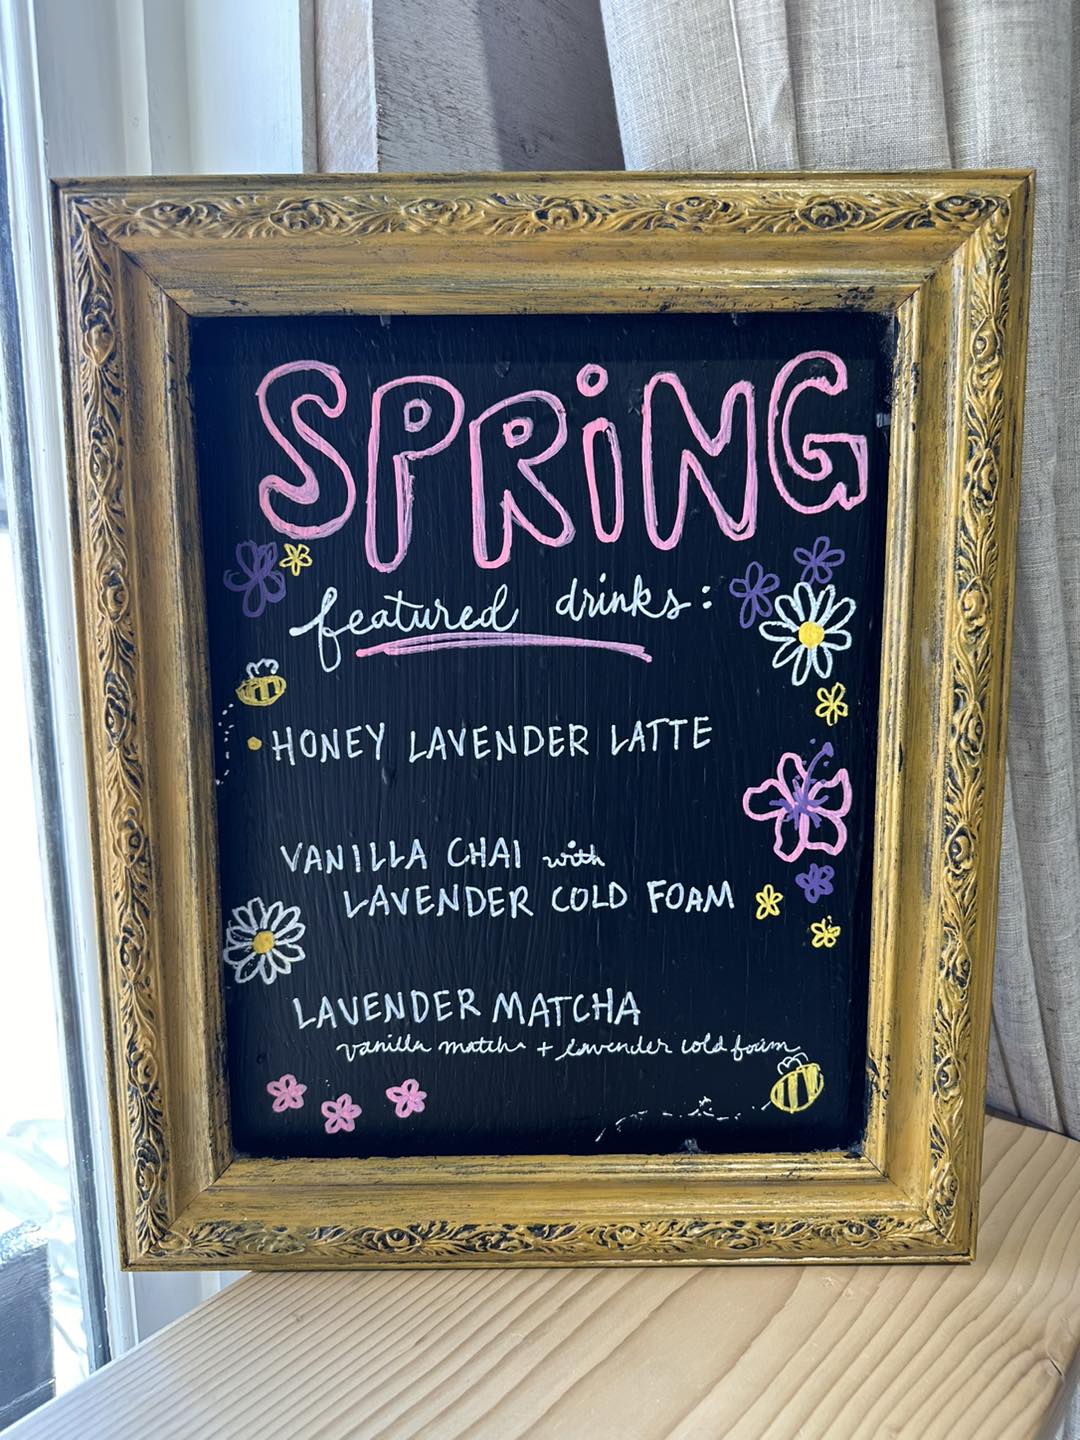 SPRiNG
featured drinks:
• HONEY LAVENDER LATTE
VANILLA CHAI with
LAVENDER COLD FOAM
LAVENDER MATCHA
vanilla matcha + lavender cold foam